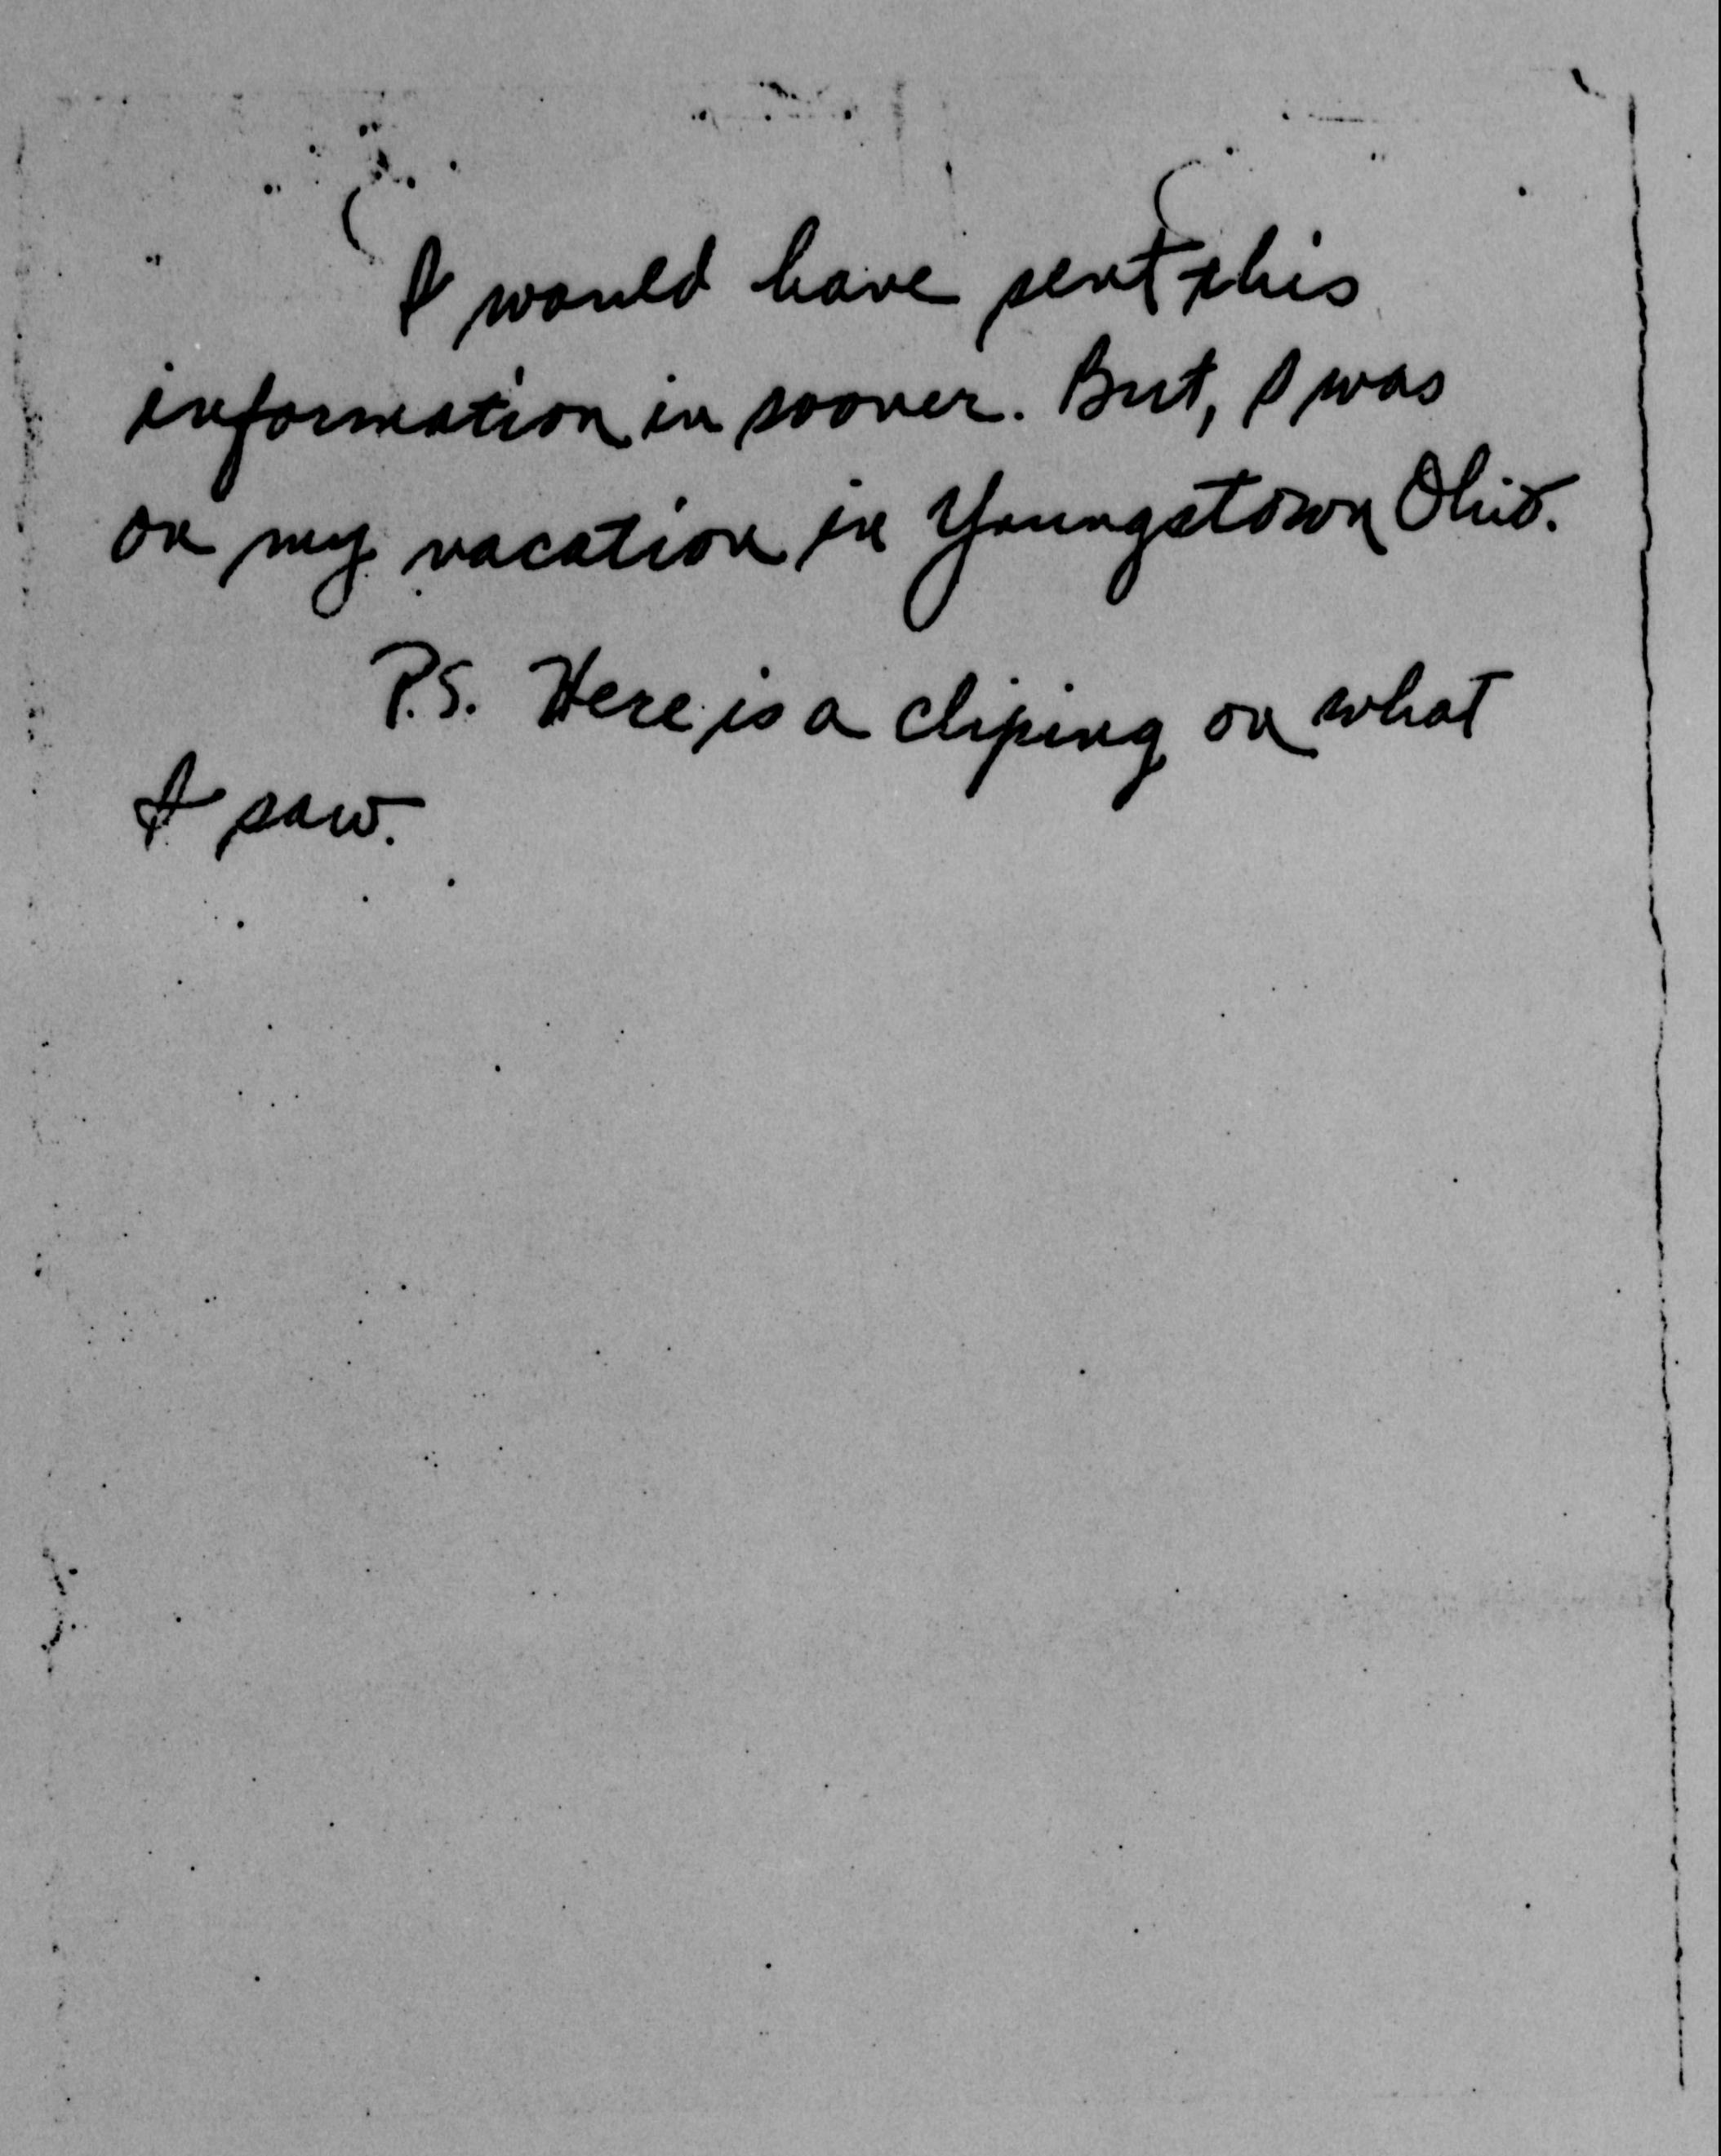 I would have sent this
information in sooner. But, I was
on my vacation in Youngstown Ohio.
P.S. Here is a cliping on what
I saw.